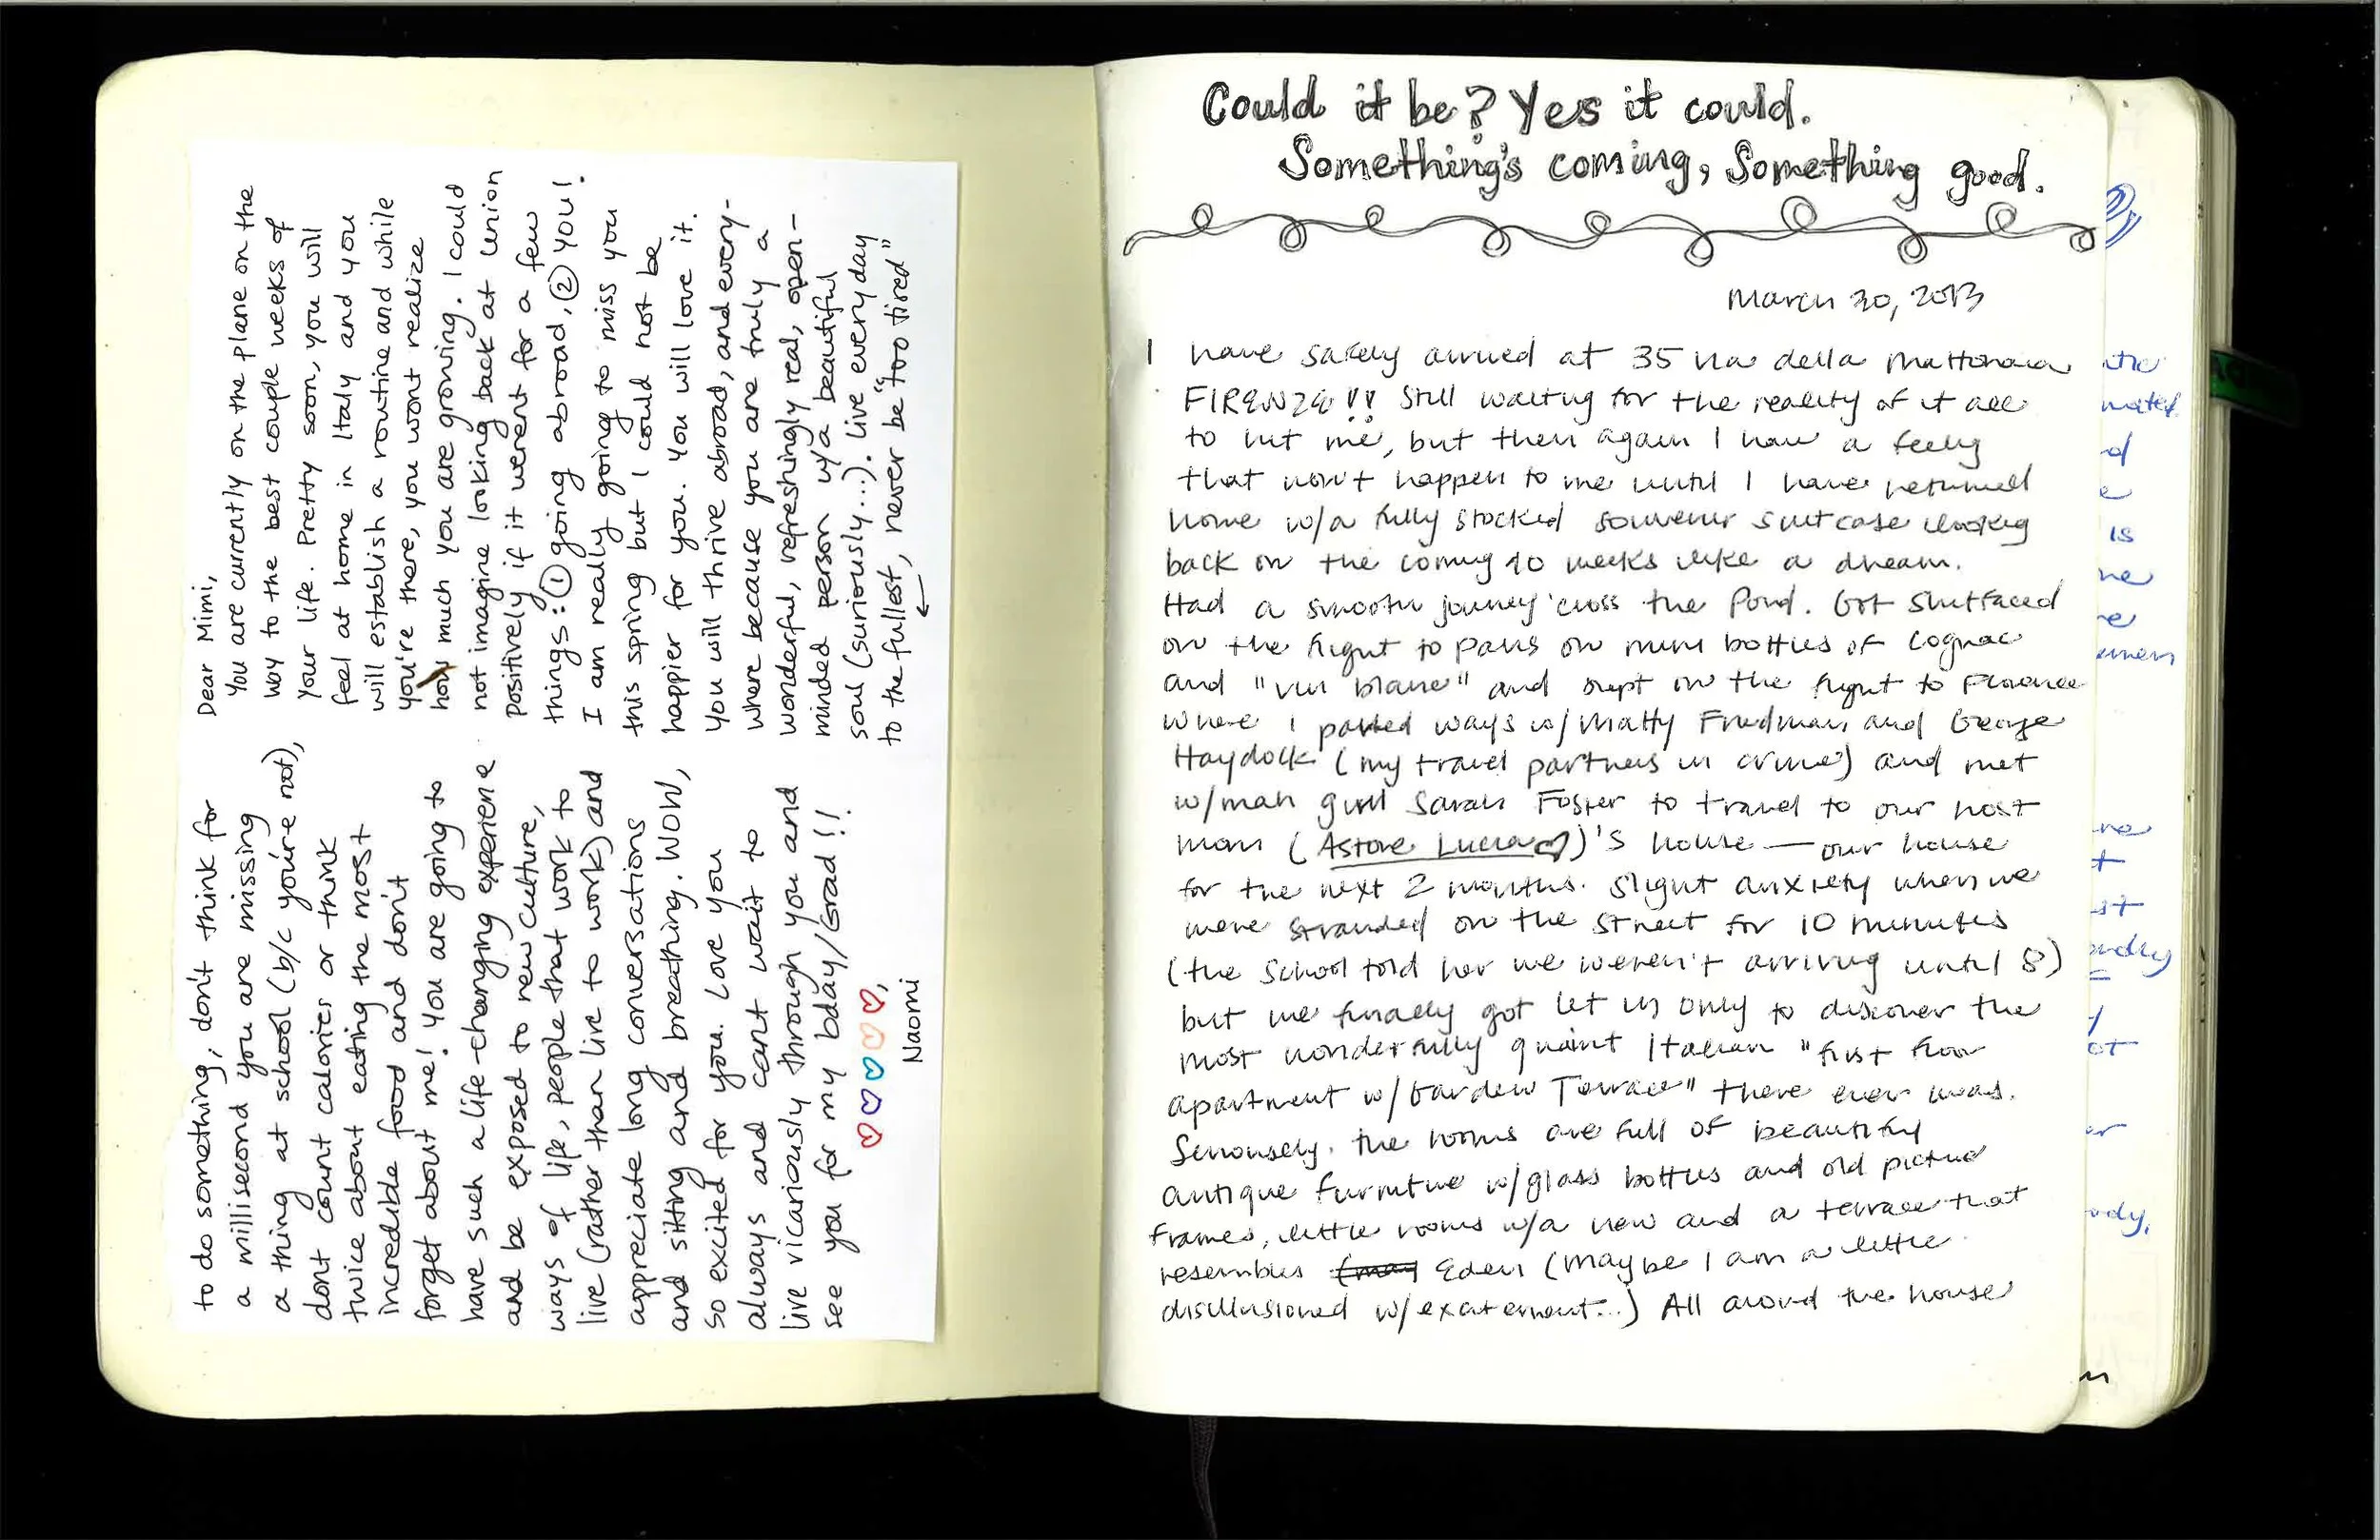 Dear Mimi,
You are currently on the plane on the
way to the best couple weeks of
your life. Pretty soon, you will
feel at home in Italy and you
will establish a routine and while
you're there, you wont realize
how much you are growing. I could
not imagine looking back at Union
positively if it werent for a few
things: ① going abroad, ② you!
I am really going to miss you
this spring but I could not be
happier for you. You will love it.
You will thrive abroad, and every-
where because you are truly a
wonderful, refreshingly real, open-
minded person w/a beautiful
soul (suriously...). live everyday
to the fullest, never be "too tired"
to do something, don't think for
a millisecond you are missing
a thing at school (b/c you're not),
dont count calories or think
twice about eating the most
incredible food and don't
forget about me! You are going to
have such a life-changing experience
and be exposed to new culture,
ways of life, people that work to
live (rather than live to work) and
appreciate long conversations
and sitting and breathing. WOW,
so excited for you. Love you
always and cant wait to
live vicariously through you and
see you for my bday/Grad!!
♡♡♡♡♡,
Naomi
Could it be? Yes it could.
Something's coming, Something good.
March 30, 2013
I have safely arrived at 35 via della Mattonaia
FIRENZE!! Still waiting for the reality of it all
to hit me, but then again I have a feeling
that won't happen to me until I have returned
home w/a fully stocked souvenir suitcase looking
back on the coming 10 weeks like a dream.
Had a smooth journey 'cross the Pond. Got Shitfaced
on the flight to Paris on mini bottles of Cognac
and "vin blanc" and slept on the flight to Florence
where I parted ways w/Matty Friedman and George
Haydock (my travel partners in crime) and met
w/mah gurl Sarah Foster to travel to our host
mom (Astore Lucia♡)'s house — our house
for the next 2 months. Slight anxiety when we
were stranded on the street for 10 minutes
(the School told her we weren't arriving until 8)
but we finally got let in only to discover the
most wonderfully quaint Italian "first floor
apartment w/Garden Terrace" there ever was.
Seriously, the rooms are full of beautiful
antique furniture w/glass bottles and old picture
frames, little rooms w/a view and a terrace that
resembles (may Eden (maybe I am a little
disillusioned w/excitement...) All around the house